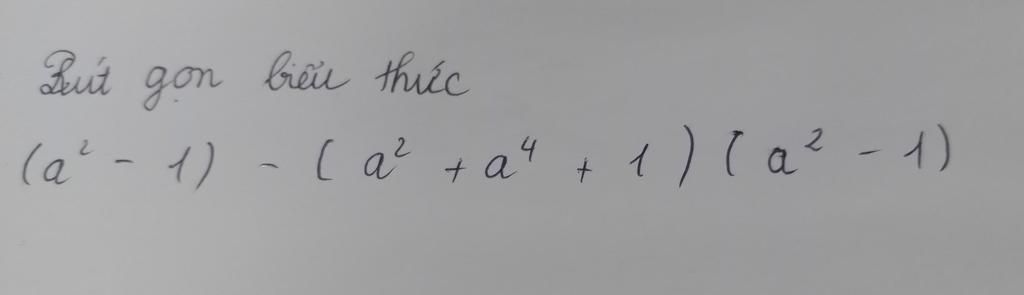 Rút gọn biểu thức
(a² - 1) - (a² + a⁴ + 1)(a² - 1)